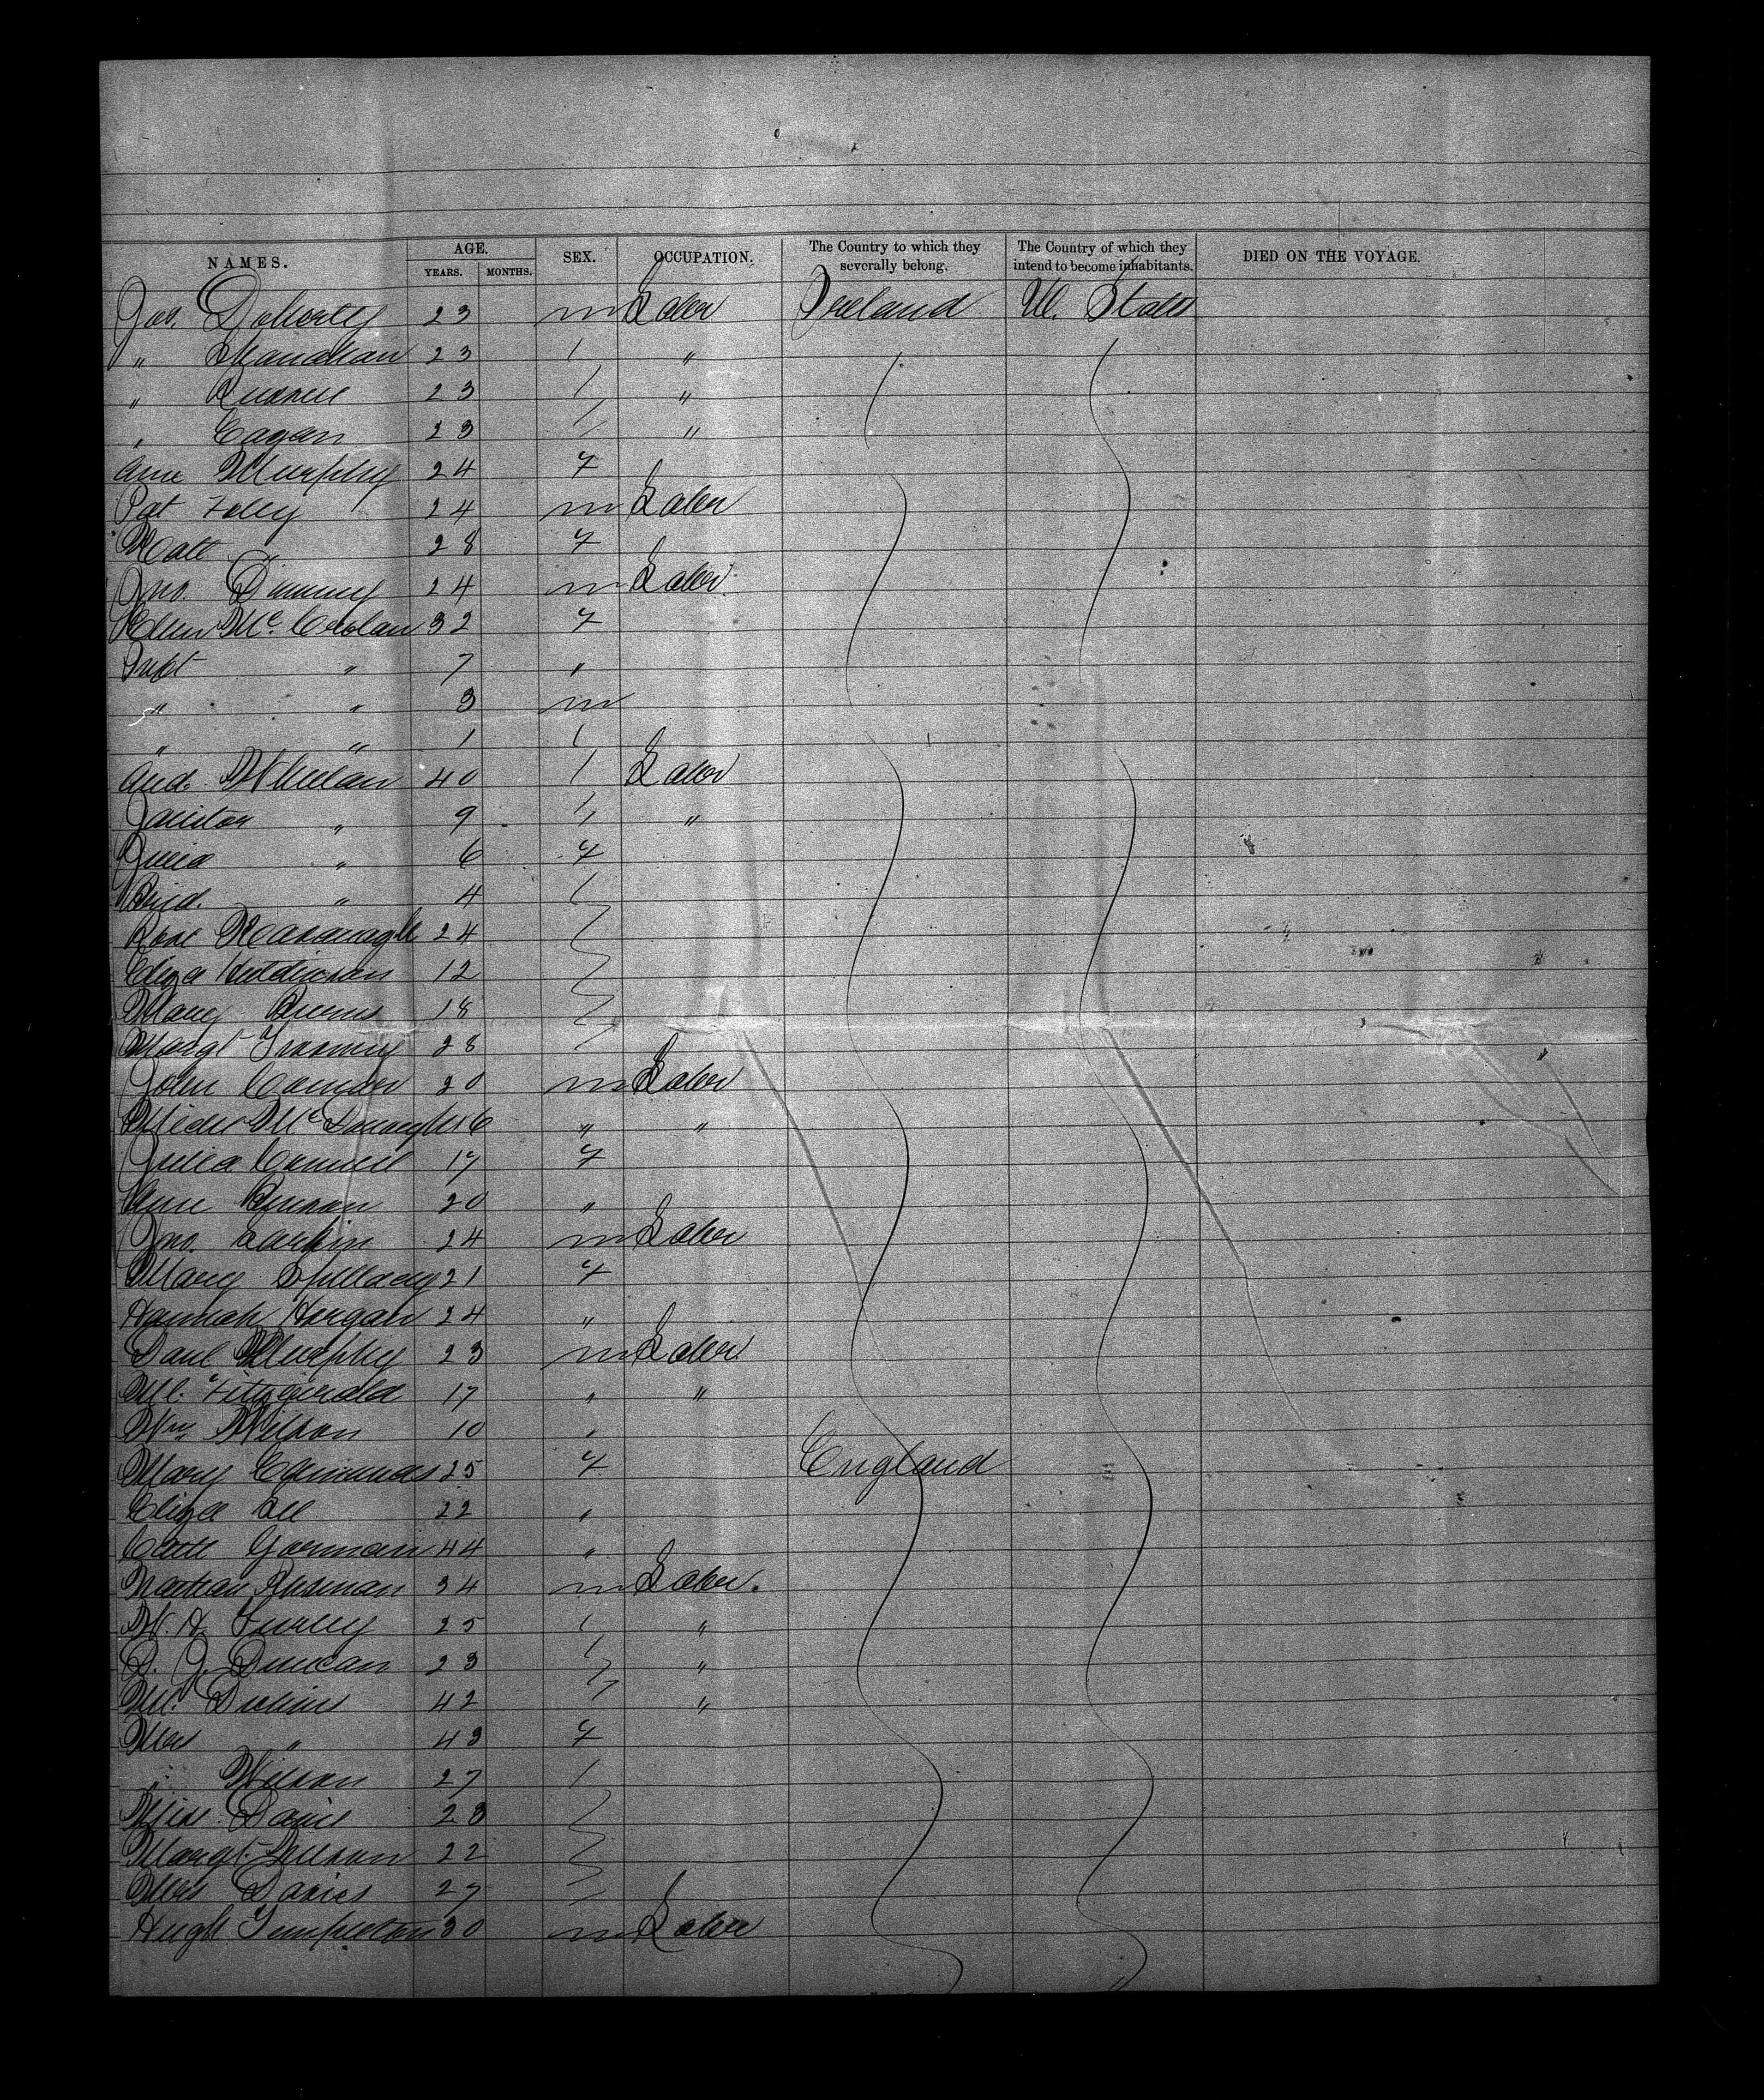 NAMES. AGE. YEARS. MONTHS. SEX. OCCUPATION. The Country to which they severally belong. The Country of which they intend to become inhabitants. DIED ON THE VOYAGE.
Jas. Doherty 23 m Labr Ireland U. States
" Shanahan 23 "
" Russell 23 "
" Eagan 23 "
Ann Murphy 24 f
Pat Foley 24 m Labr
Kate " 28 f
Jno. 24 m Labr
Ellen Mc. 32 f
Inft " 7 "
" " 3 m
" " 1
And. Whelan 40 Labr
" 9 "
Julia " 6 f
Brid. " 4
Rose Kavanagh 24
Eliza 12
Mary Burns 18
Margt 28
John Connor 20 m Labr
McDonagh 16 " "
Julia 17 f
Ann 20 "
Jno. Larkin 24 m Labr
Mary Spillacy 21 f
Hannah Horgan 24 "
Danl Murphy 23 m Labr
Ml. Fitzgerald 17 " "
Wm Wilson 10 "
Mary 25 f England
Eliza 22 "
Cath Gorman 44 "
34 m Labr.
W. H. 25 "
Duncan 23 "
42 "
Mrs " 43 f
" Wilson 27
Miss 28
Margt 22
Mrs Davies 27
Hugh Templeton 30 m Labr